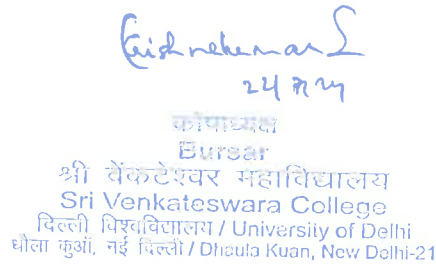 Krishnakumar S
कोषाध्यक्ष
Bursar
श्री वेंकटेश्वर महाविद्यालय
Sri Venkateswara College
दिल्ली विश्वविद्यालय / University of Delhi
धौला कुआँ, नई दिल्ली / Dhaula Kuan, New Delhi-21